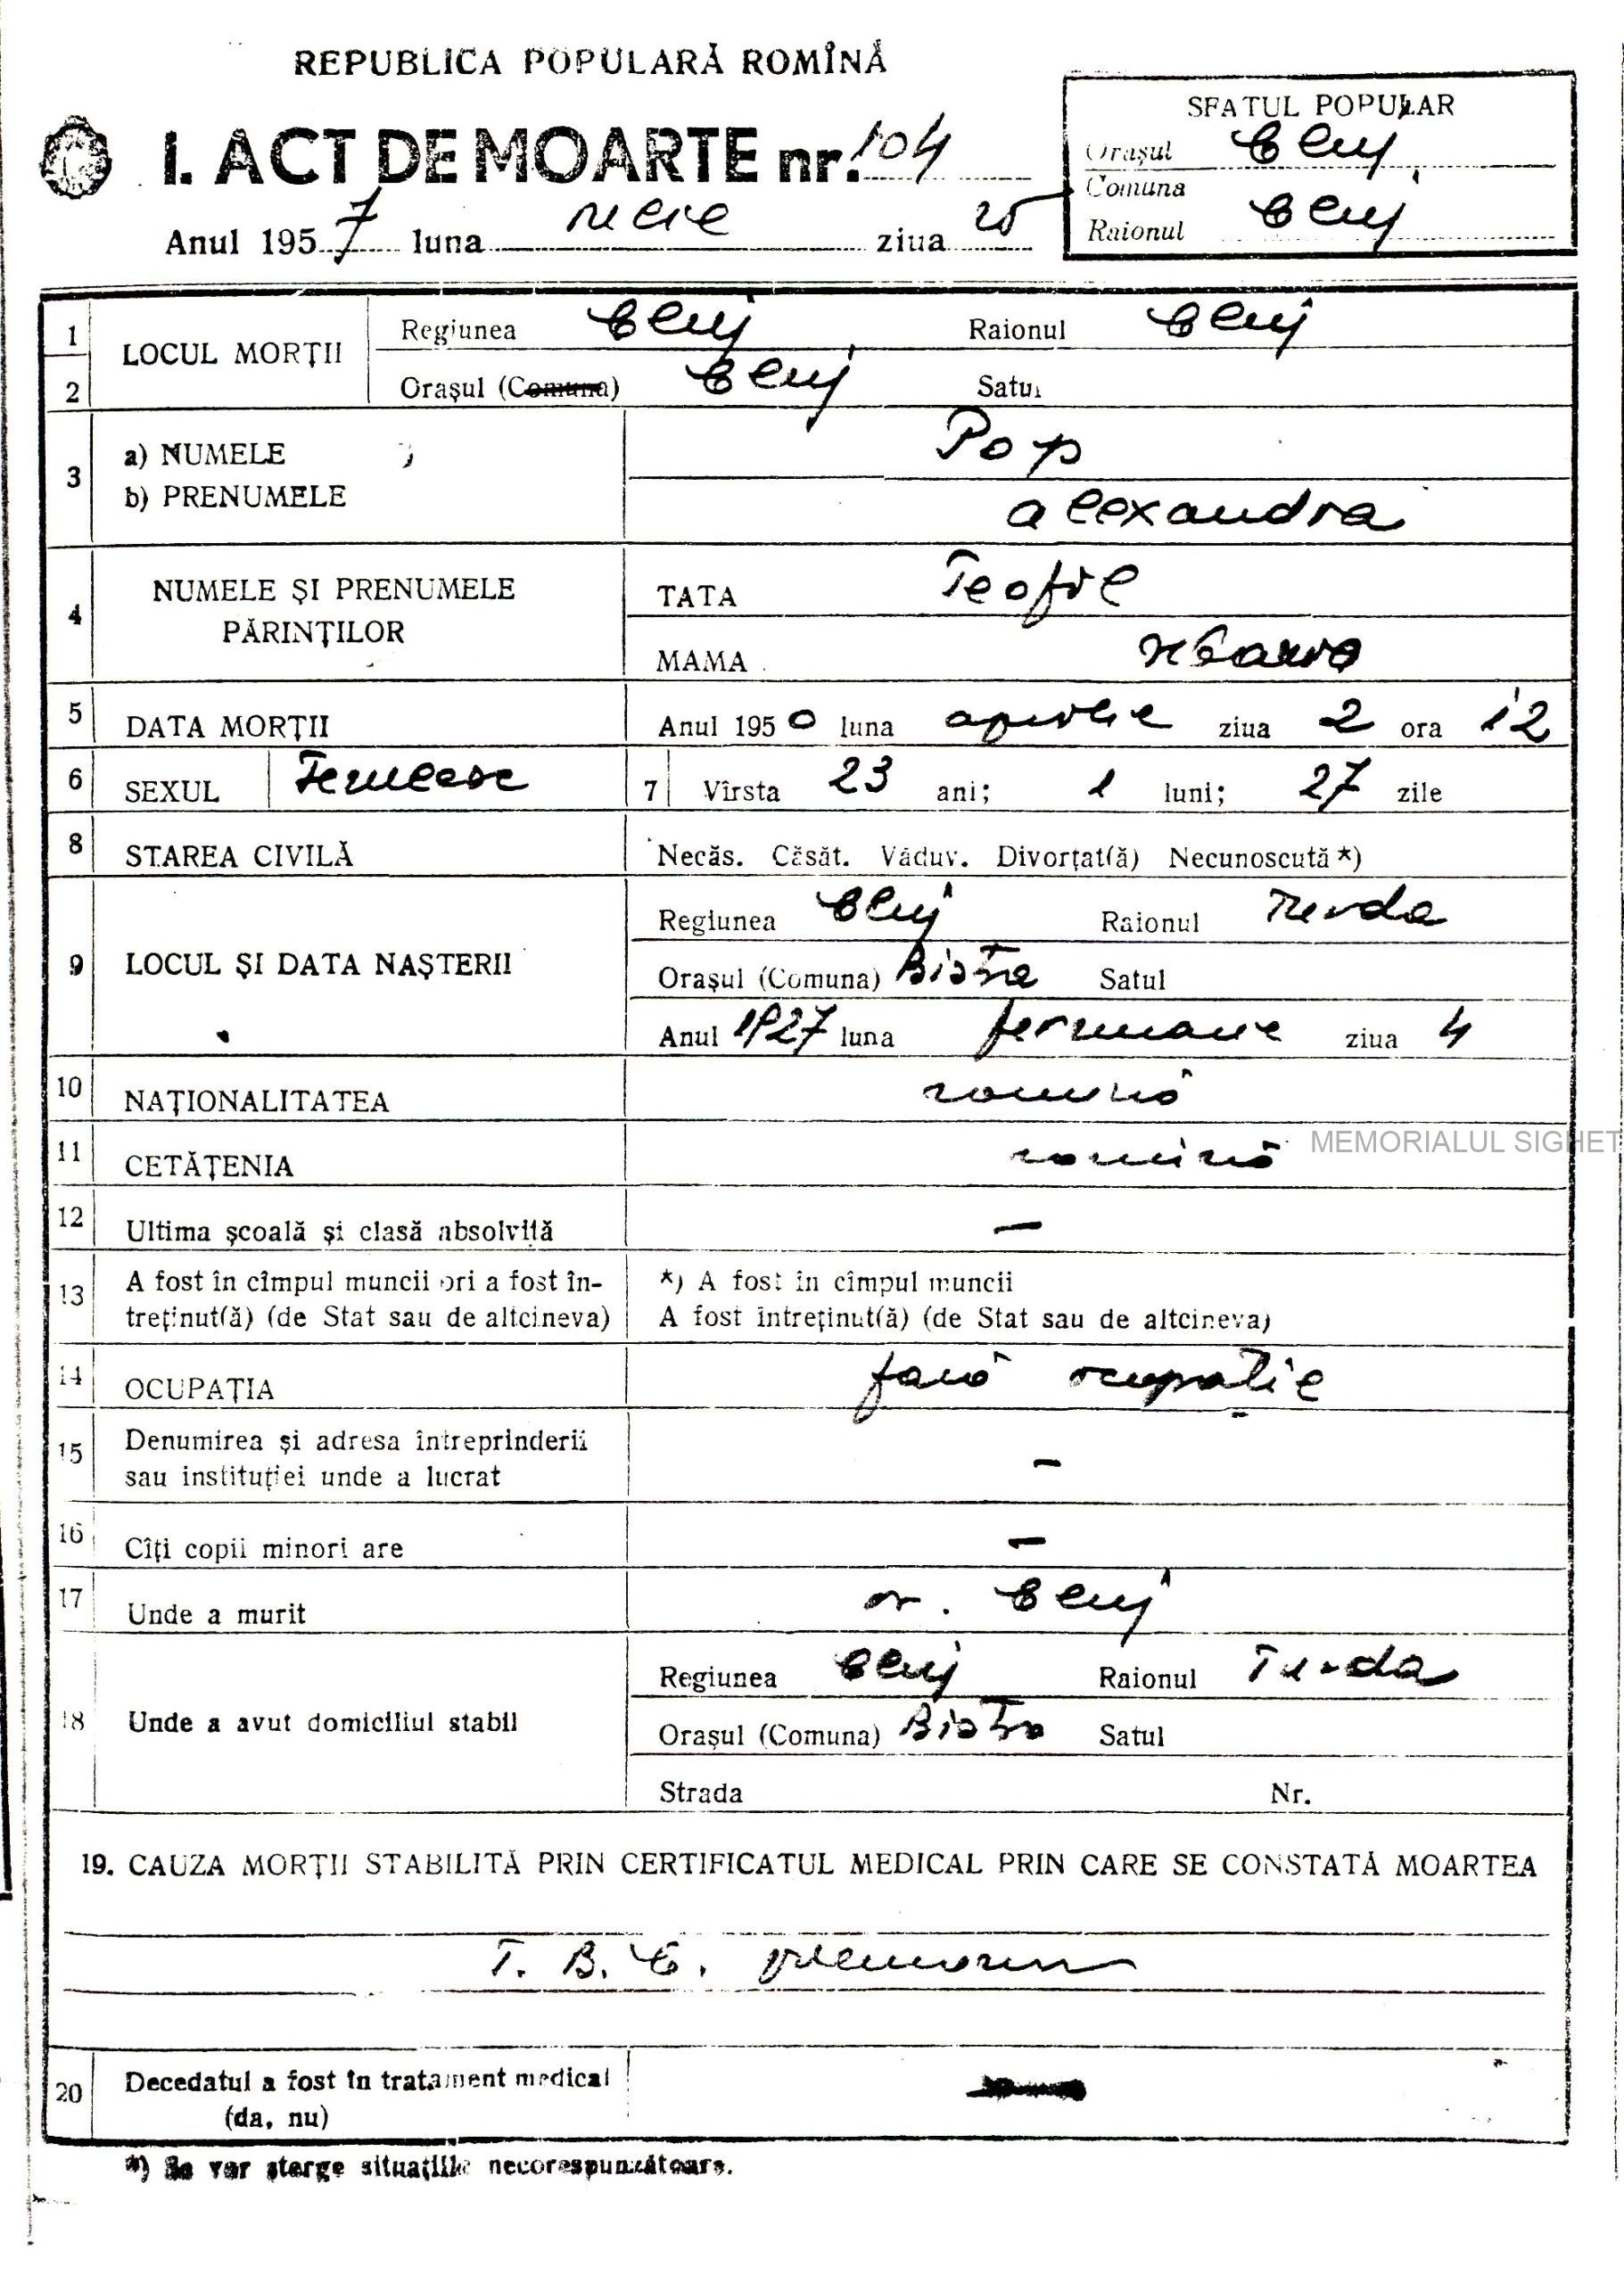 REPUBLICA POPULARĂ ROMÎNĂ
I. ACT DE MOARTE nr. 104
Anul 1957 luna ziua 25
SFATUL POPULAR
Orașul Cluj
Comuna
Raionul Cluj
1 LOCUL MORȚII Regiunea Cluj Raionul Cluj
2 Orașul (Comuna) Cluj Satul
3 a) NUMELE Pop
b) PRENUMELE Alexandra
4 NUMELE ȘI PRENUMELE PĂRINȚILOR TATA Teofil
MAMA
5 DATA MORȚII Anul 1950 luna aprilie ziua 2 ora 12
6 SEXUL Femeesc 7 Vîrsta 23 ani; 1 luni; 27 zile
8 STAREA CIVILĂ Necăs. Căsăt. Văduv. Divorțat(ă) Necunoscută *)
9 LOCUL ȘI DATA NAȘTERII Regiunea Cluj Raionul Turda
Orașul (Comuna) Bistra Satul
Anul 1927 luna ziua 4
10 NAȚIONALITATEA romînă
11 CETĂȚENIA romînă
MEMORIALUL SIGHET
12 Ultima școală și clasă absolvită —
13 A fost în cîmpul muncii ori a fost în- *) A fost în cîmpul muncii
treținut(ă) (de Stat sau de altcineva) A fost întreținut(ă) (de Stat sau de altcineva)
14 OCUPAȚIA fară ocupație
15 Denumirea și adresa întreprinderii
sau instituției unde a lucrat —
16 Cîți copii minori are —
17 Unde a murit or. Cluj
18 Unde a avut domiciliul stabil Regiunea Cluj Raionul Turda
Orașul (Comuna) Bistra Satul
Strada Nr.
19. CAUZA MORȚII STABILITĂ PRIN CERTIFICATUL MEDICAL PRIN CARE SE CONSTATĂ MOARTEA
T. B. C.
20 Decedatul a fost în tratament medical
(da, nu)
*) Se vor șterge situațiile necorespunzătoare.